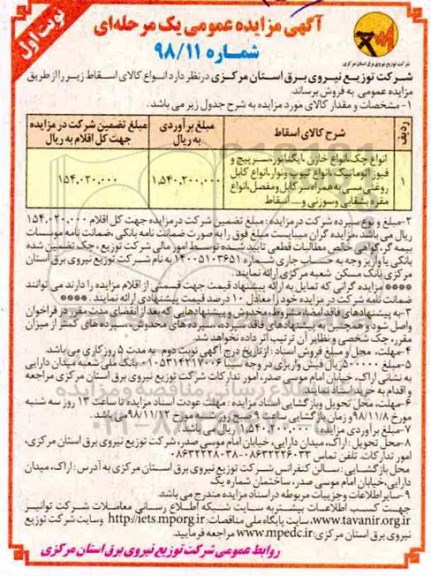 نوبت اول
آگهی مزایده عمومی یک مرحله‌ای
شماره ۹۸/۱۱
شرکت توزیع نیروی برق استان مرکزی
شرکت توزیع نیروی برق استان مرکزی درنظر دارد انواع کالای اسقاط زیر را از طریق
مزایده عمومی به فروش برساند.
۱- مشخصات و مقدار کالای مورد مزایده به شرح جدول زیر می باشد.
ردیف
شرح کالای اسقاط
مبلغ برآوردی به ریال
مبلغ تضمین شرکت در مزایده جهت کل اقلام به ریال
۱
انواع جک، انواع خازن، ایگنایور، سرپیچ و
فیوز اتوماتیک، انواع تیوپ ونوار، انواع کابل
روغنی مسی به همراه سر کابل ومفصل، انواع
مقره بشقابی وسوزنی و... اسقاط
۱,۵۴۰,۲۰۰,۰۰۰
۱۵۴,۰۲۰,۰۰۰
۲-مبلغ و نوع سپرده شرکت درمزایده: مبلغ تضمین شرکت در مزایده جهت کل اقلام ۱۵۴,۰۲۰,۰۰۰
ریال می باشد، مزایده گران میبایست مبلغ فوق را به صورت ضمانت نامه بانکی، ضمانت نامه موسسات
بیمه گر، گواهی خالص مطالبات قطعی تایید شده توسط امور مالی شرکت توزیع، چک تضمین شده
بانکی یا واریز وجه به حساب جاری شماره ۱۴۰۰۵۱۰۳۶۵۱ به نام شرکت توزیع نیروی برق استان
مرکزی بانک مسکن شعبه مرکزی ارائه نمایند.
**** مزایده گرانی که تمایل به ارائه پیشنهاد قیمت جهت قسمتی از اقلام مزایده را دارند می توانند
ضمانت نامه شرکت در مزایده خود را معادل ۱۰ درصد قیمت پیشنهادی ارائه نمایند. ****
۳-به پیشنهادهای فاقد امضا، مشروط، مخدوش و پیشنهادهایی که بعد از انقضای مدت مقرر در فراخوان
واصل شود و همچنین به پیشنهادهای فاقد سپرده، سپرده های مخدوش، سپرده های کمتر از میزان
مقرر، چک شخصی و نظایر آن ترتیب اثر داده نخواهد شد.
۴-مهلت، محل و مبلغ فروش اسناد: از تاریخ درج آگهی نوبت دوم به مدت ۵ روز کاری می باشد.
۵-مبلغ ۵۰۰,۰۰۰ ریال فیش واریزی در وجه سیبا ۰۱۰۵۳۱۴۲۲۱۷۰۰۶ بانک ملی شعبه میدان دارایی
به نشانی اراک، خیابان امام موسی صدر، امور تدارکات شرکت توزیع نیروی برق استان مرکزی مراجعه
و اقدام به خرید اسناد نمایند.
۶-مهلت، محل تحویل وبازگشایی اسناد مزایده: مهلت عودت اسناد مزایده تا ساعت ۱۳ روز سه شنبه
مورخ ۹۸/۱۱/۸ وزمان بازگشایی ساعت مورخ ۹۸/۱۱/۱۲ می باشد.
۷-مبلغ برآوردی مزایده: ریال
۸-محل تحویل: اراک، میدان دارایی، خیابان امام موسی صدر، شرکت توزیع نیروی برق استان مرکزی،
امور تدارکات، تلفن تماس ۰۸۶۳۲۲۲۶۰۳۳-۰۸۶۳۲۲۲۸۰۳۸
محل بازگشایی: سالن کنفرانس شرکت توزیع نیروی برق استان مرکزی به آدرس: اراک، میدان
دارایی، خیابان امام موسی صدر، ساختمان شماره یک
۹-سایر اطلاعات و جزییات مربوطه در اسناد مزایده مندرج می باشد.
جهت کسب اطلاعات بیشتر به سایت شبکه اطلاع رسانی معاملات شرکت توانیر
www.tavanir.org.ir، سایت پایگاه ملی مناقصات: http://iets.mporg.ir وسایت شرکت توزیع
نیروی برق استان مرکزی www.mpedc.ir مراجعه فرمایید.
روابط عمومی شرکت توزیع نیروی برق استان مرکزی